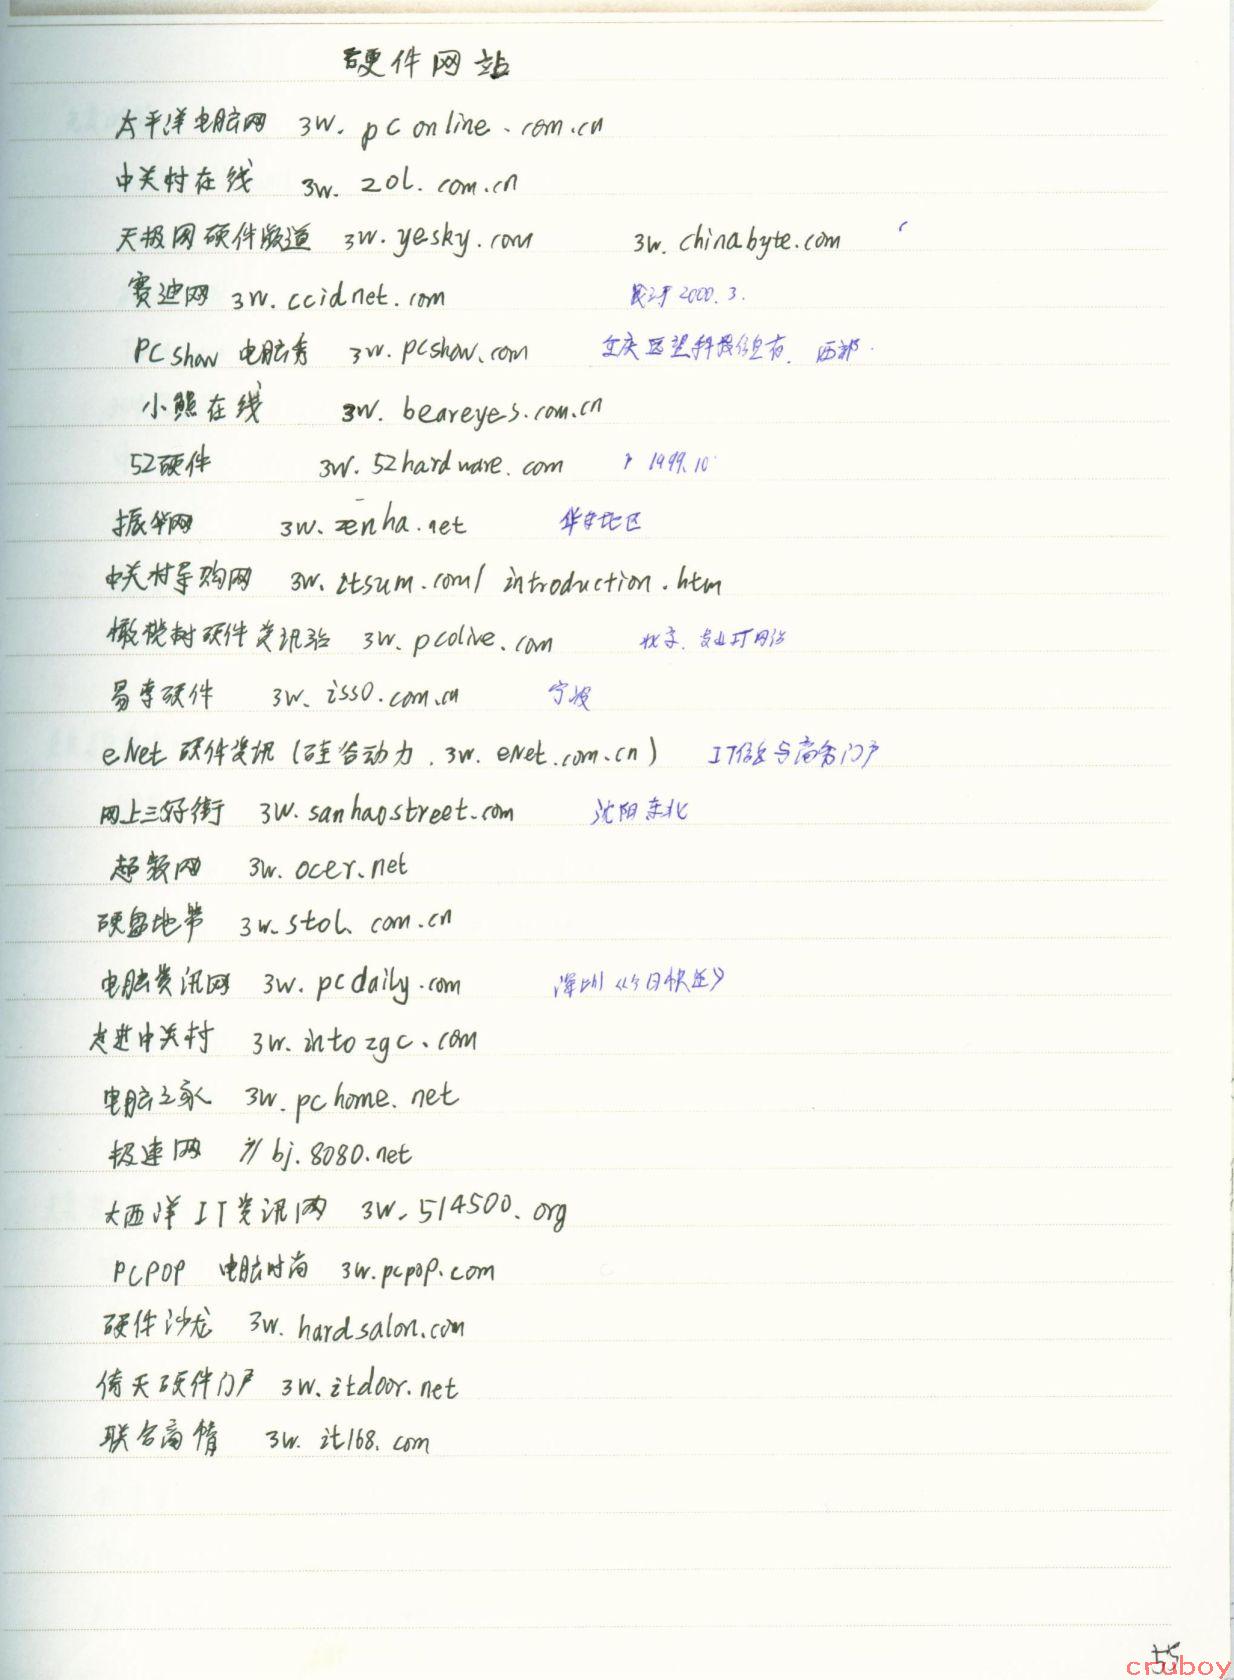 硬件网站
太平洋电脑网 3W. pconline.com.cn
中关村在线 3W. ZOL.com.cn
天极网硬件频道 3W.yesky.com 3W. chinabyte.com
赛迪网 3W.ccidnet.com 成立于2000.3.
PC show 电脑秀 3W.pcshow.com 重庆远望科技信息 西部.
小熊在线 3W. beareyes.com.cn
52硬件 3W.52hardware.com 1999.10
振华网 3W.zenha.net 华东地区
中关村导购网 3W.itsum.com/introduction.htm
橄榄树硬件资讯站 3W.pcolive.com 北京. 专业IT网站
易李硬件 3W.isso.com.cn 宁波
eNet硬件资讯(硅谷动力.3W.eNet.com.cn) IT信息与商务门户
网上三好街 3W.sanhaostreet.com 沈阳东北
超频网 3W.ocer.net
硬盘地带 3W.stol.com.cn
电脑资讯网 3W.pcdaily.com 深圳《今日快送》
走进中关村 3W.intozgc.com
电脑之家 3W.pchome.net
极速网 //bj.8080.net
大西洋IT资讯网 3W.514500.org
PCPOP 电脑时尚 3W.pcpop.com
硬件沙龙 3W.hardsalon.com
倚天硬件门户 3W.itdoor.net
联合商情 3W.it168.com
55
cruboy